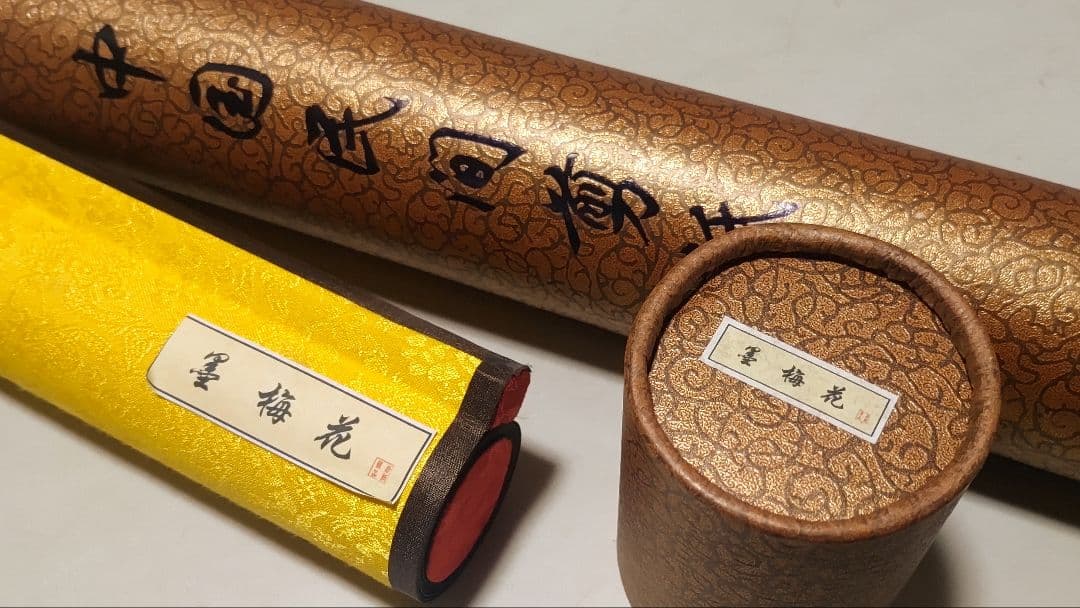 中国民间剪纸
墨梅花
墨梅花